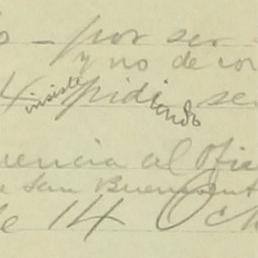 o – por ser
y no de cor
4 insiste pidiendo se
uencia al Ofi
e San Buenavent
de 14 Oc